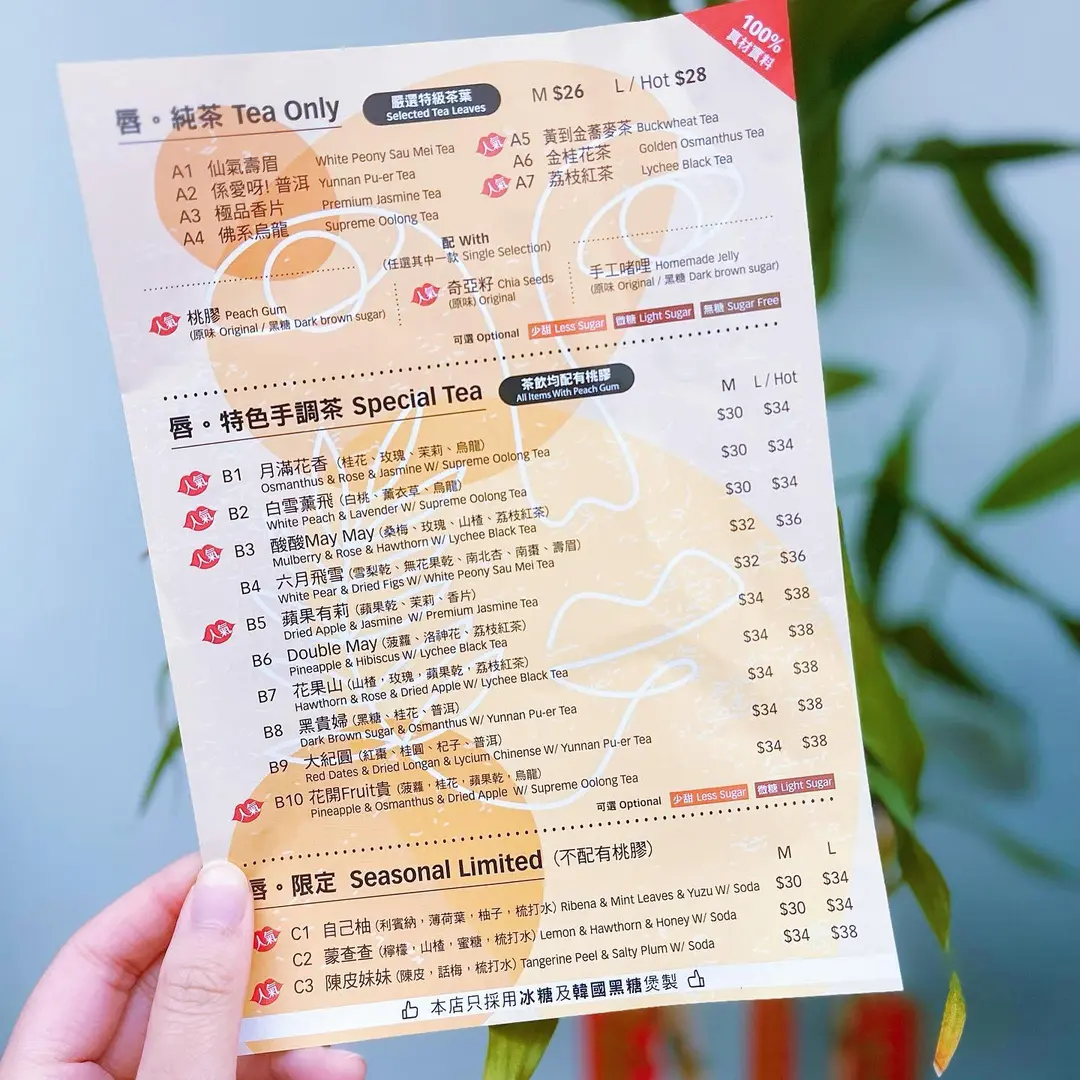 100%
真材實料
唇。純茶 Tea Only
嚴選特級茶葉
Selected Tea Leaves
M $26 L / Hot $28
A1 仙氣壽眉 White Peony Sau Mei Tea
A2 係愛呀! 普洱 Yunnan Pu-er Tea
A3 極品香片 Premium Jasmine Tea
A4 佛系烏龍 Supreme Oolong Tea
人氣 A5 黃到金蕎麥茶 Buckwheat Tea
A6 金桂花茶 Golden Osmanthus Tea
人氣 A7 荔枝紅茶 Lychee Black Tea
配 With
(任選其中一款 Single Selection)
人氣 桃膠 Peach Gum
(原味 Original / 黑糖 Dark brown sugar)
人氣 奇亞籽 Chia Seeds
(原味) Original
手工啫哩 Homemade Jelly
(原味 Original / 黑糖 Dark brown sugar)
可選 Optional 少甜 Less Sugar 微糖 Light Sugar 無糖 Sugar Free
唇。特色手調茶 Special Tea
茶飲均配有桃膠
All Items With Peach Gum
M L / Hot
人氣 B1 月滿花香 (桂花、玫瑰、茉莉、烏龍) $30 $34
Osmanthus & Rose & Jasmine W/ Supreme Oolong Tea
人氣 B2 白雪薰飛 (白桃、薰衣草、烏龍) $30 $34
White Peach & Lavender W/ Supreme Oolong Tea
人氣 B3 酸酸May May (桑梅、玫瑰、山楂、荔枝紅茶) $30 $34
Mulberry & Rose & Hawthorn W/ Lychee Black Tea
B4 六月飛雪 (雪梨乾、無花果乾、南北杏、南棗、壽眉) $32 $36
White Pear & Dried Figs W/ White Peony Sau Mei Tea
人氣 B5 蘋果有莉 (蘋果乾、茉莉、香片) $32 $36
Dried Apple & Jasmine W/ Premium Jasmine Tea
B6 Double May (菠蘿、洛神花、荔枝紅茶) $34 $38
Pineapple & Hibiscus W/ Lychee Black Tea
B7 花果山 (山楂，玫瑰，蘋果乾，荔枝紅茶) $34 $38
Hawthorn & Rose & Dried Apple W/ Lychee Black Tea
B8 黑貴婦 (黑糖、桂花、普洱) $34 $38
Dark Brown Sugar & Osmanthus W/ Yunnan Pu-er Tea
B9 大紀圓 (紅棗、桂圓、杞子、普洱) $34 $38
Red Dates & Dried Longan & Lycium Chinense W/ Yunnan Pu-er Tea
人氣 B10 花開Fruit貴 (菠蘿，桂花，蘋果乾，烏龍) $34 $38
Pineapple & Osmanthus & Dried Apple W/ Supreme Oolong Tea
可選 Optional 少甜 Less Sugar 微糖 Light Sugar
唇。限定 Seasonal Limited (不配有桃膠)
M L
人氣 C1 自己柚 (利賓納，薄荷葉，柚子，梳打水) Ribena & Mint Leaves & Yuzu W/ Soda $30 $34
C2 蒙查查 (檸檬，山楂，蜜糖，梳打水) Lemon & Hawthorn & Honey W/ Soda $30 $34
人氣 C3 陳皮妹妹 (陳皮，話梅，梳打水) Tangerine Peel & Salty Plum W/ Soda $34 $38
本店只採用冰糖及韓國黑糖煲製